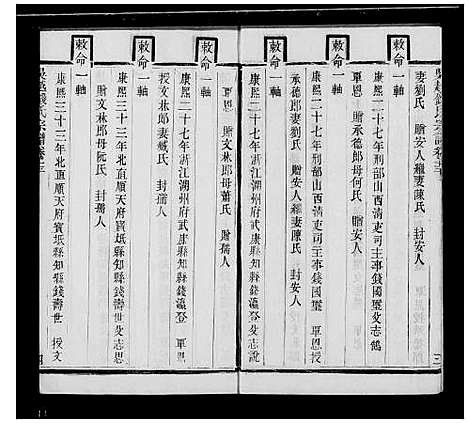 吳越錢氏宗譜卷之三
妻劉氏 贈安人繼妻陳氏 封安人
敕命一軸
康熙二十七年刑部山西清吏司主事錢國璽父志鶴
覃恩 贈承德郎母何氏 贈安人
敕命一軸
康熙二十七年刑部山西清吏司主事錢國璽 覃恩授
承德郎妻劉氏 贈安人繼妻陳氏 封安人
敕命一軸
康熙二十七年浙江湖州府武康縣知縣錢瀛登父志說
贈文林郎母蕭氏 贈孺人
敕命一軸
康熙二十七年浙江湖州府武康縣知縣錢瀛登 覃恩
授文林郎妻臧氏 封孺人
敕命一軸
康熙三十三年北直順天府寶坻縣知縣錢壽世父志恩
贈文林郎母阮氏 封孺人
敕命一軸
康熙三十三年北直順天府寶坻縣知縣錢壽世 授文
吳越錢氏宗譜卷之三